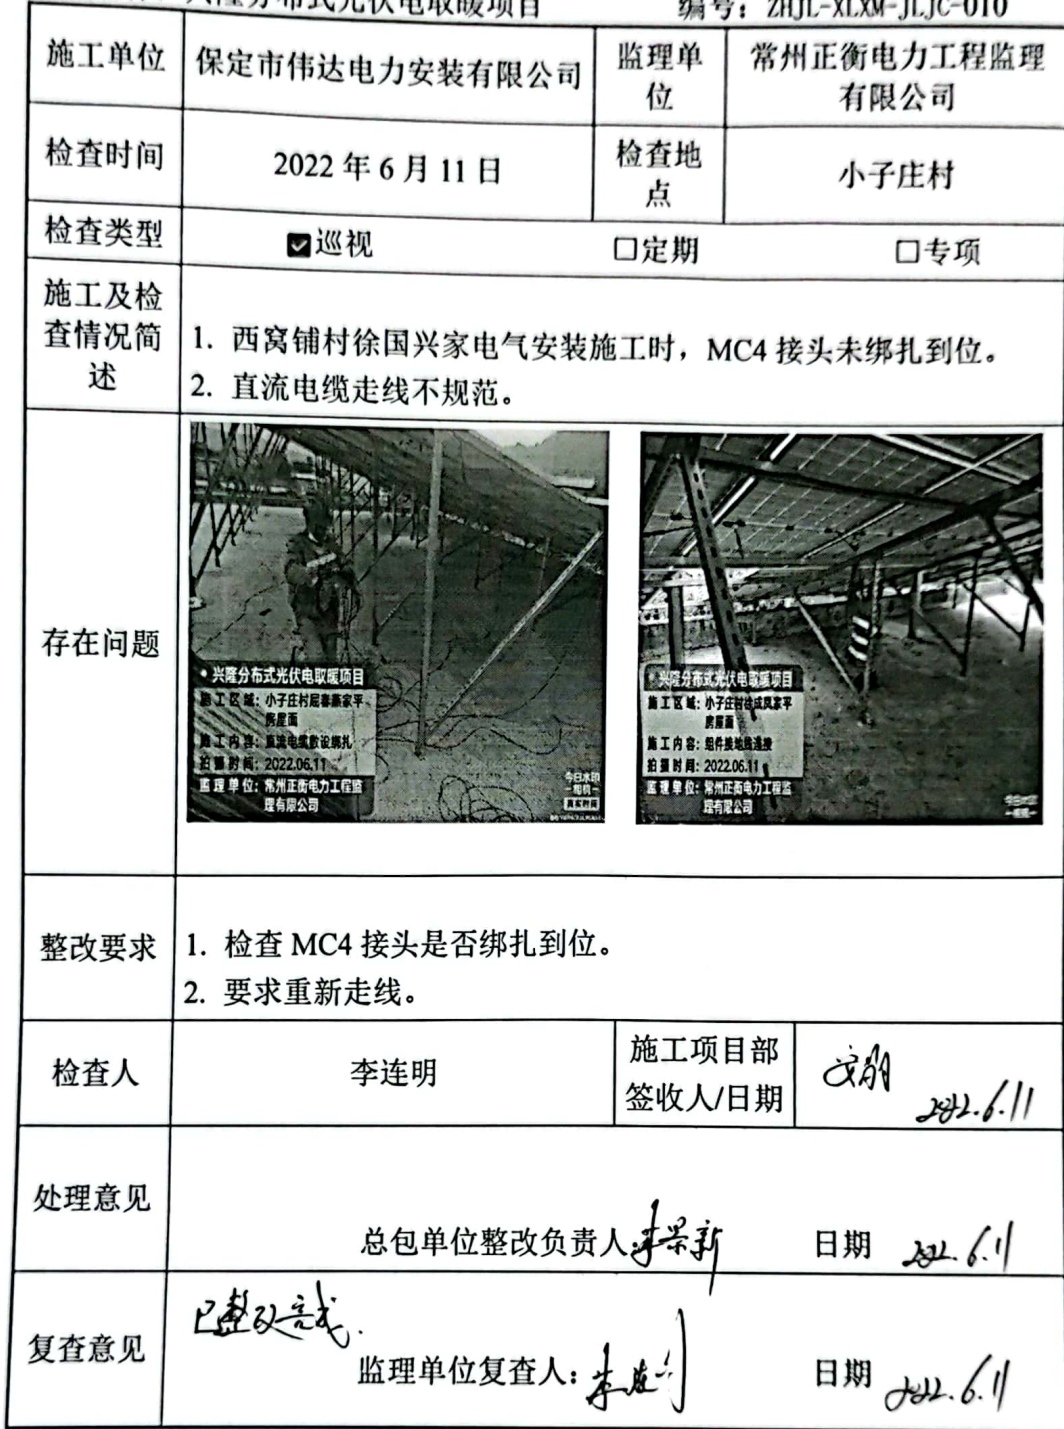 兴隆分布式光伏电取暖项目 编号：ZHJL-XLXM-JLJC-010
施工单位 保定市伟达电力安装有限公司 监理单位 常州正衡电力工程监理有限公司
检查时间 2022 年 6 月 11 日 检查地点 小子庄村
检查类型 ☑巡视 □定期 □专项
施工及检查情况简述
1. 西窝铺村徐国兴家电气安装施工时，MC4 接头未绑扎到位。
2. 直流电缆走线不规范。
存在问题
• 兴隆分布式光伏电取暖项目
施工区域：小子庄村屈春燕家平
房屋面
施工内容：直流电缆敷设绑扎
拍摄时间：2022.06.11
监理单位：常州正衡电力工程监
理有限公司
今日水印
-相机-
真实时间
• 兴隆分布式光伏电取暖项目
施工区域：小子庄村徐成凤家平
房屋面
施工内容：组件接地线连接
拍摄时间：2022.06.11
监理单位：常州正衡电力工程监
理有限公司
整改要求
1. 检查 MC4 接头是否绑扎到位。
2. 要求重新走线。
检查人 李连明 施工项目部签收人/日期 2022.6.11
处理意见
总包单位整改负责人: 李景新 日期 2022.6.11
复查意见
已整改完成.
监理单位复查人： 李连明 日期 2022.6.11